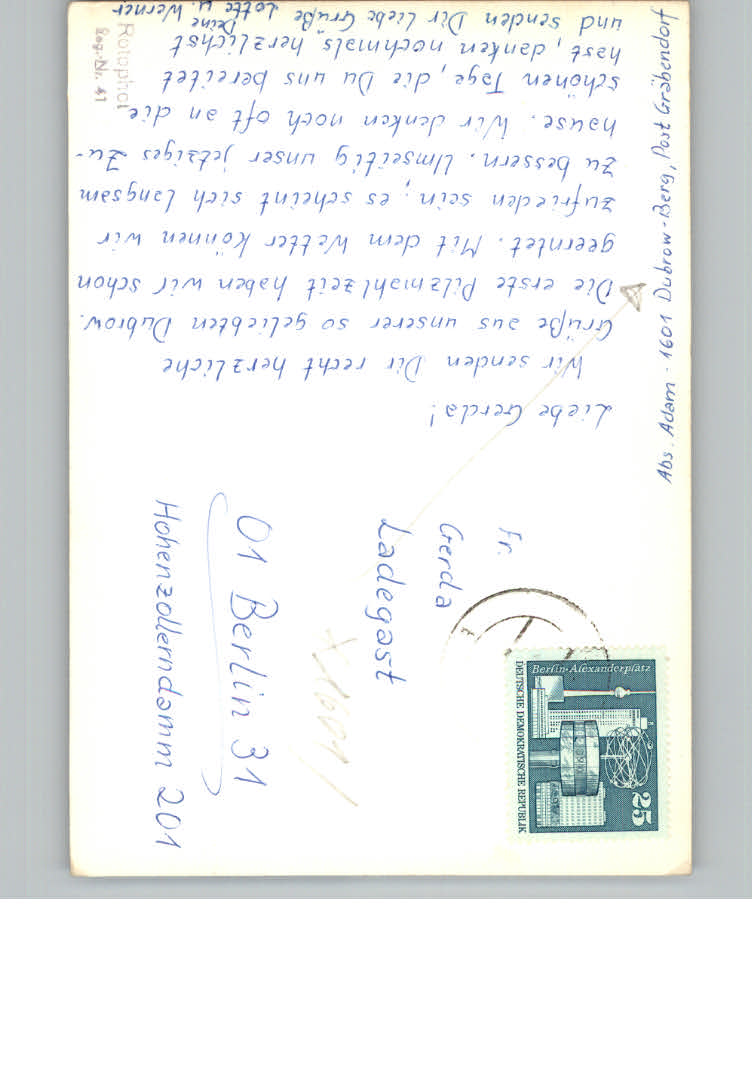 Liebe Gerda!
Wir senden Dir recht herzliche
Grüße aus unserer so geliebten Dubrow.
Die erste Pilzmahlzeit haben wir schon
geerntet. Mit dem Wetter können wir
zufrieden sein, es scheint sich langsam
zu bessern. Umseitig unser jetziges Zu-
hause. Wir denken noch oft an die
schönen Tage, die Du uns bereitet
hast, danken nochmals herzlichst
und senden Dir liebe Grüße
Deine
Lotte u. Werner
Abs. Adam · 1601 Dubrow-Berg, Post Gräbendorf
Fr.
Gerda
Ladegast
01 Berlin 31
Hohenzollerndamm 201
Berlin-Alexanderplatz
25
DEUTSCHE DEMOKRATISCHE REPUBLIK
Rotophot
Reg.-Nr. 41